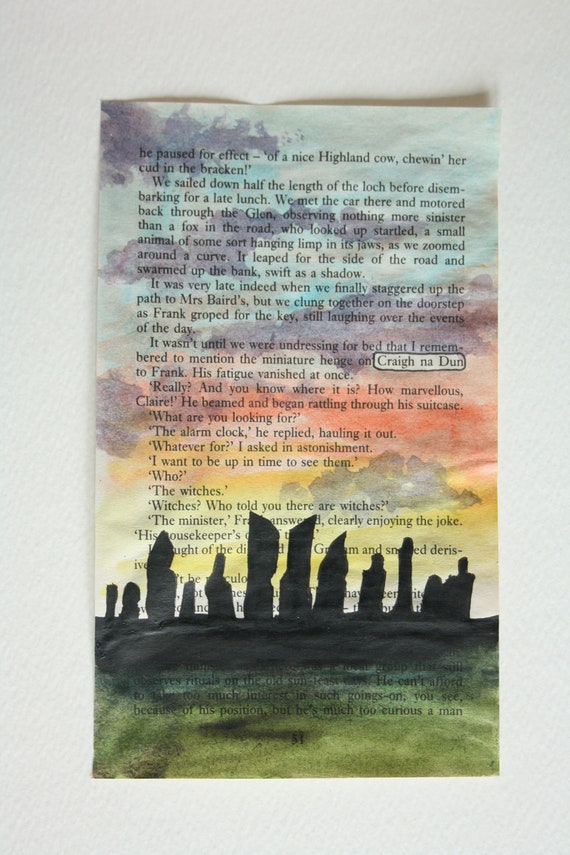 he paused for effect – ‘of a nice Highland cow, chewin’ her
cud in the bracken!’
We sailed down half the length of the loch before disem-
barking for a late lunch. We met the car there and motored
back through the Glen, observing nothing more sinister
than a fox in the road, who looked up startled, a small
animal of some sort hanging limp in its jaws, as we zoomed
around a curve. It leaped for the side of the road and
swarmed up the bank, swift as a shadow.
It was very late indeed when we finally staggered up the
path to Mrs Baird’s, but we clung together on the doorstep
as Frank groped for the key, still laughing over the events
of the day.
It wasn’t until we were undressing for bed that I remem-
bered to mention the miniature henge on Craigh na Dun
to Frank. His fatigue vanished at once.
‘Really? And you know where it is? How marvellous,
Claire!’ He beamed and began rattling through his suitcase.
‘What are you looking for?’
‘The alarm clock,’ he replied, hauling it out.
‘Whatever for?’ I asked in astonishment.
‘I want to be up in time to see them.’
‘Who?’
‘The witches.’
‘Witches? Who told you there are witches?’
‘The minister,’ answered, clearly enjoying the joke.
‘His housekeeper’s
of the and deris-
observes rituals on the old sun-feast days. He can’t afford
to take too much interest in such goings-on, you see,
because of his position, but he’s much too curious a man
51